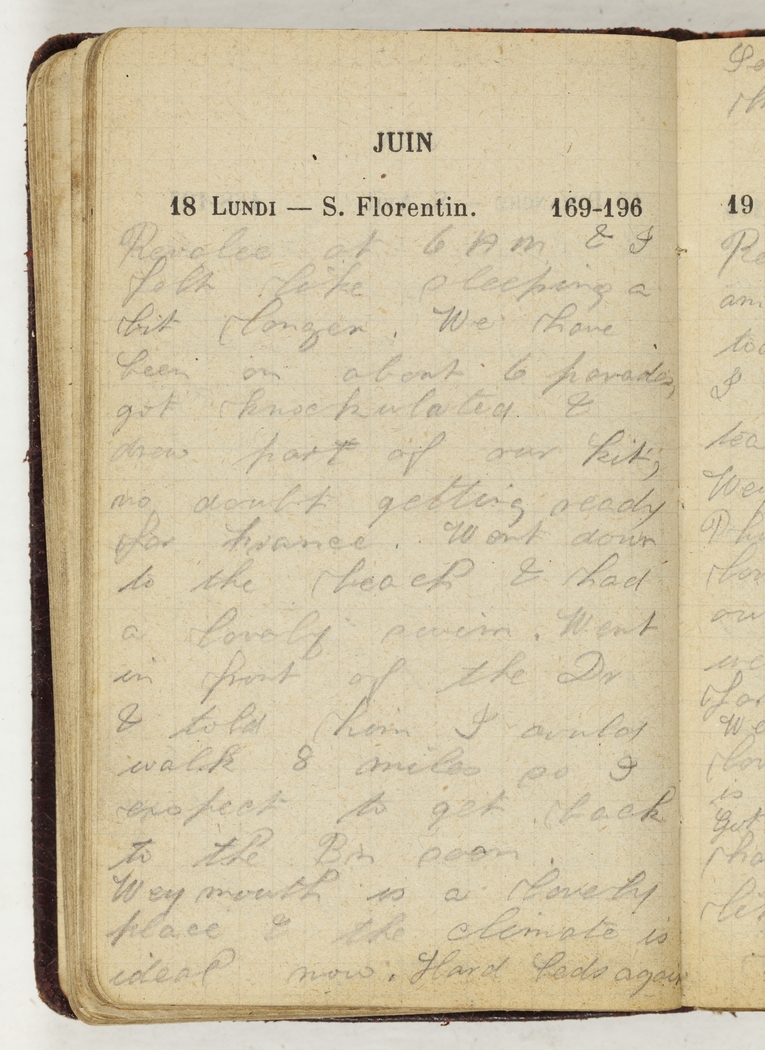 JUIN
18 LUNDI — S. Florentin. 169-196
Revalee at 6 AM & I
felt like sleeping a
bit longer. We have
been on about 6 parades,
got knockulated &
drew part of our kit,
no doubt getting ready
for France. Went down
to the beach & had
a lovely swim. Went
in front of the Dr
& told him I could
walk 8 miles so I
expect to get back
to the Bn soon.
Weymouth is a lovely
place & the climate is
ideal now. Hard beds again
19
Re
am
to
I
tea
Wey
our
we
for
We
is
Got